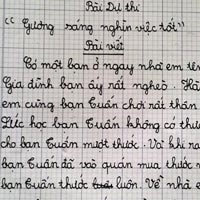 Bài Dự thi
“Gương sáng nghìn việc tốt”
Bài viết
Có một bạn ở ngay nhà em tên
Gia đình bạn ấy rất nghèo.
em cùng bạn Tuấn chơi rất thân
học bạn Tuấn không có thư
cho bạn Tuấn mượt thước. Và khi ra
bạn Tuấn đã vào quán mua thước
bạn Tuấn thước luôn. Về nhà e